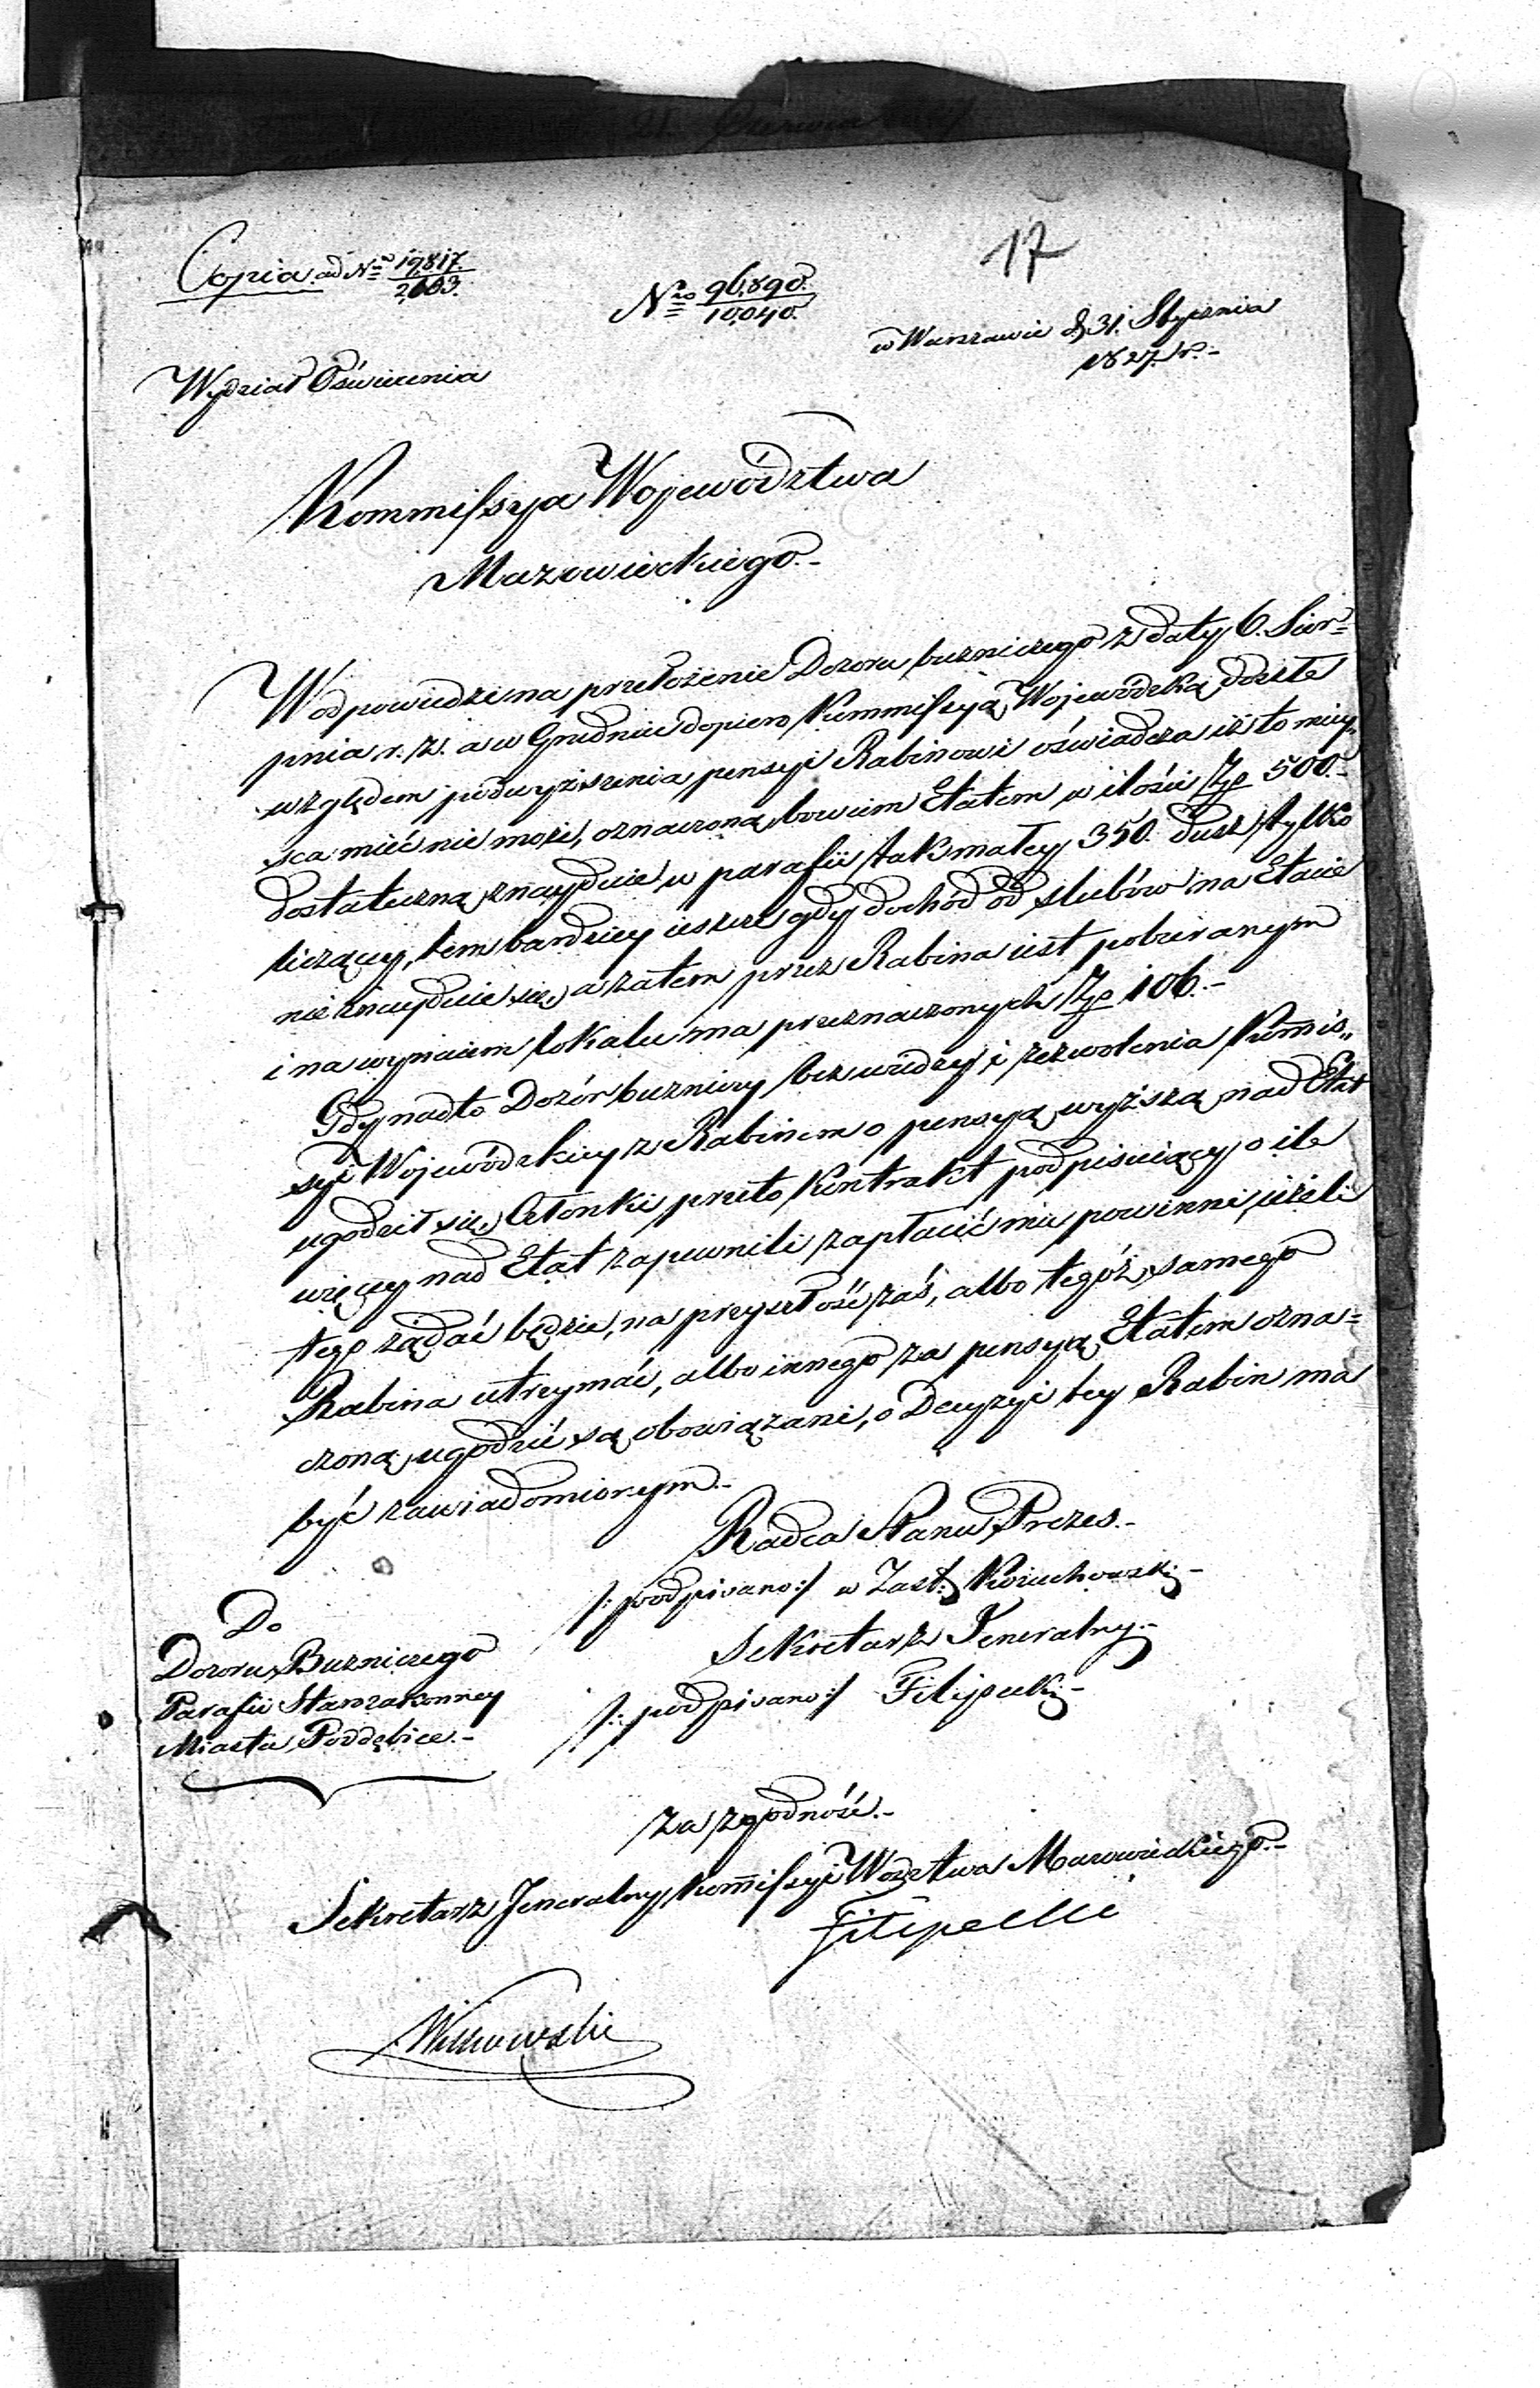 17
Copia ad Nro 19,817. / 2,603.
Nro 96,890. / 10,040.
w Warszawie d. 31. Stycznia
1827. r.-
Wydział Oświecenia
Kommissya Województwa
Mazowieckiego.-
W odpowiedzi na przełożenie Dozoru buzniczego z daty 6. Sier=
pnia r. z. a w Grudniu dopiero Kommissyą Wojewódzką doszłe
względem podwyższenia pensyi Rabinowi oświadcza iż to miey„
sca mieć nie może, oznaczoną bowiem Etatem w ilości Zp 500.-
dostateczną znayduie w parafii tak małey 350. dusz tylko
liczącey, tem bardziey ieszcze gdy dochód od ślubów na Etacie
nie znayduie się, a zatem przez Rabina iest pobieranym
i na wynaięm lokalu ma przeznaczonych Zp 106.-
Gdy nadto Dozór buzniczy bez wiedzy i zezwolenia Kommis„
syi Wojewódzkiey z Rabinem o pensyą wyższą nad Etat
ugodził się, Członki przeto Kontrakt podpisuiący o ile
więcey nad Etat zapewnili zapłacić mu powinni, ieżeli
tego żądać będzie, na przyszłość zaś, albo tegoż samego
Rabina utrzymać, albo innego za pensyą Etatem ozna=
czoną ugodzić są obowiązani, o Decyzyi tey Rabin ma
być zawiadomionym.-
Radca Stanu Prezes.-
/: podpisano :/ w Zast: Kożuchowski -
Sekretarz Jeneralny.-
/: podpisano :/ Filipecki -
Do
Dozoru Buzniczego
Parafii Starozakonney
Miasta Poddębice.-
Za zgodność.-
Sekretarz Jeneralny Kommissyi Wodztwa Mazowieckiego.-
Filipecki